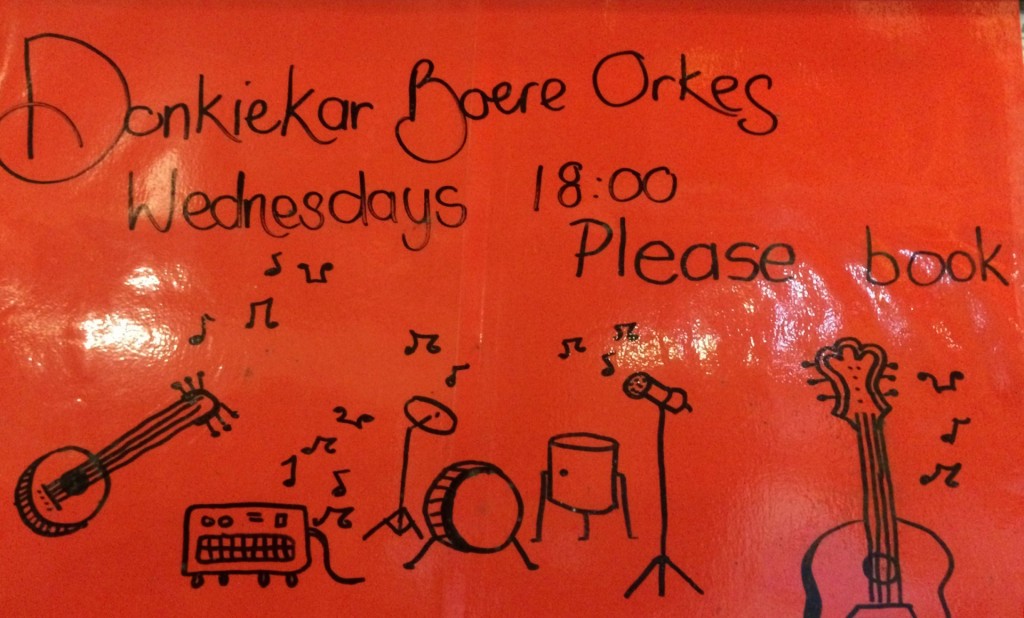 Donkiekar Boere Orkes
Wednesdays 18:00
Please book